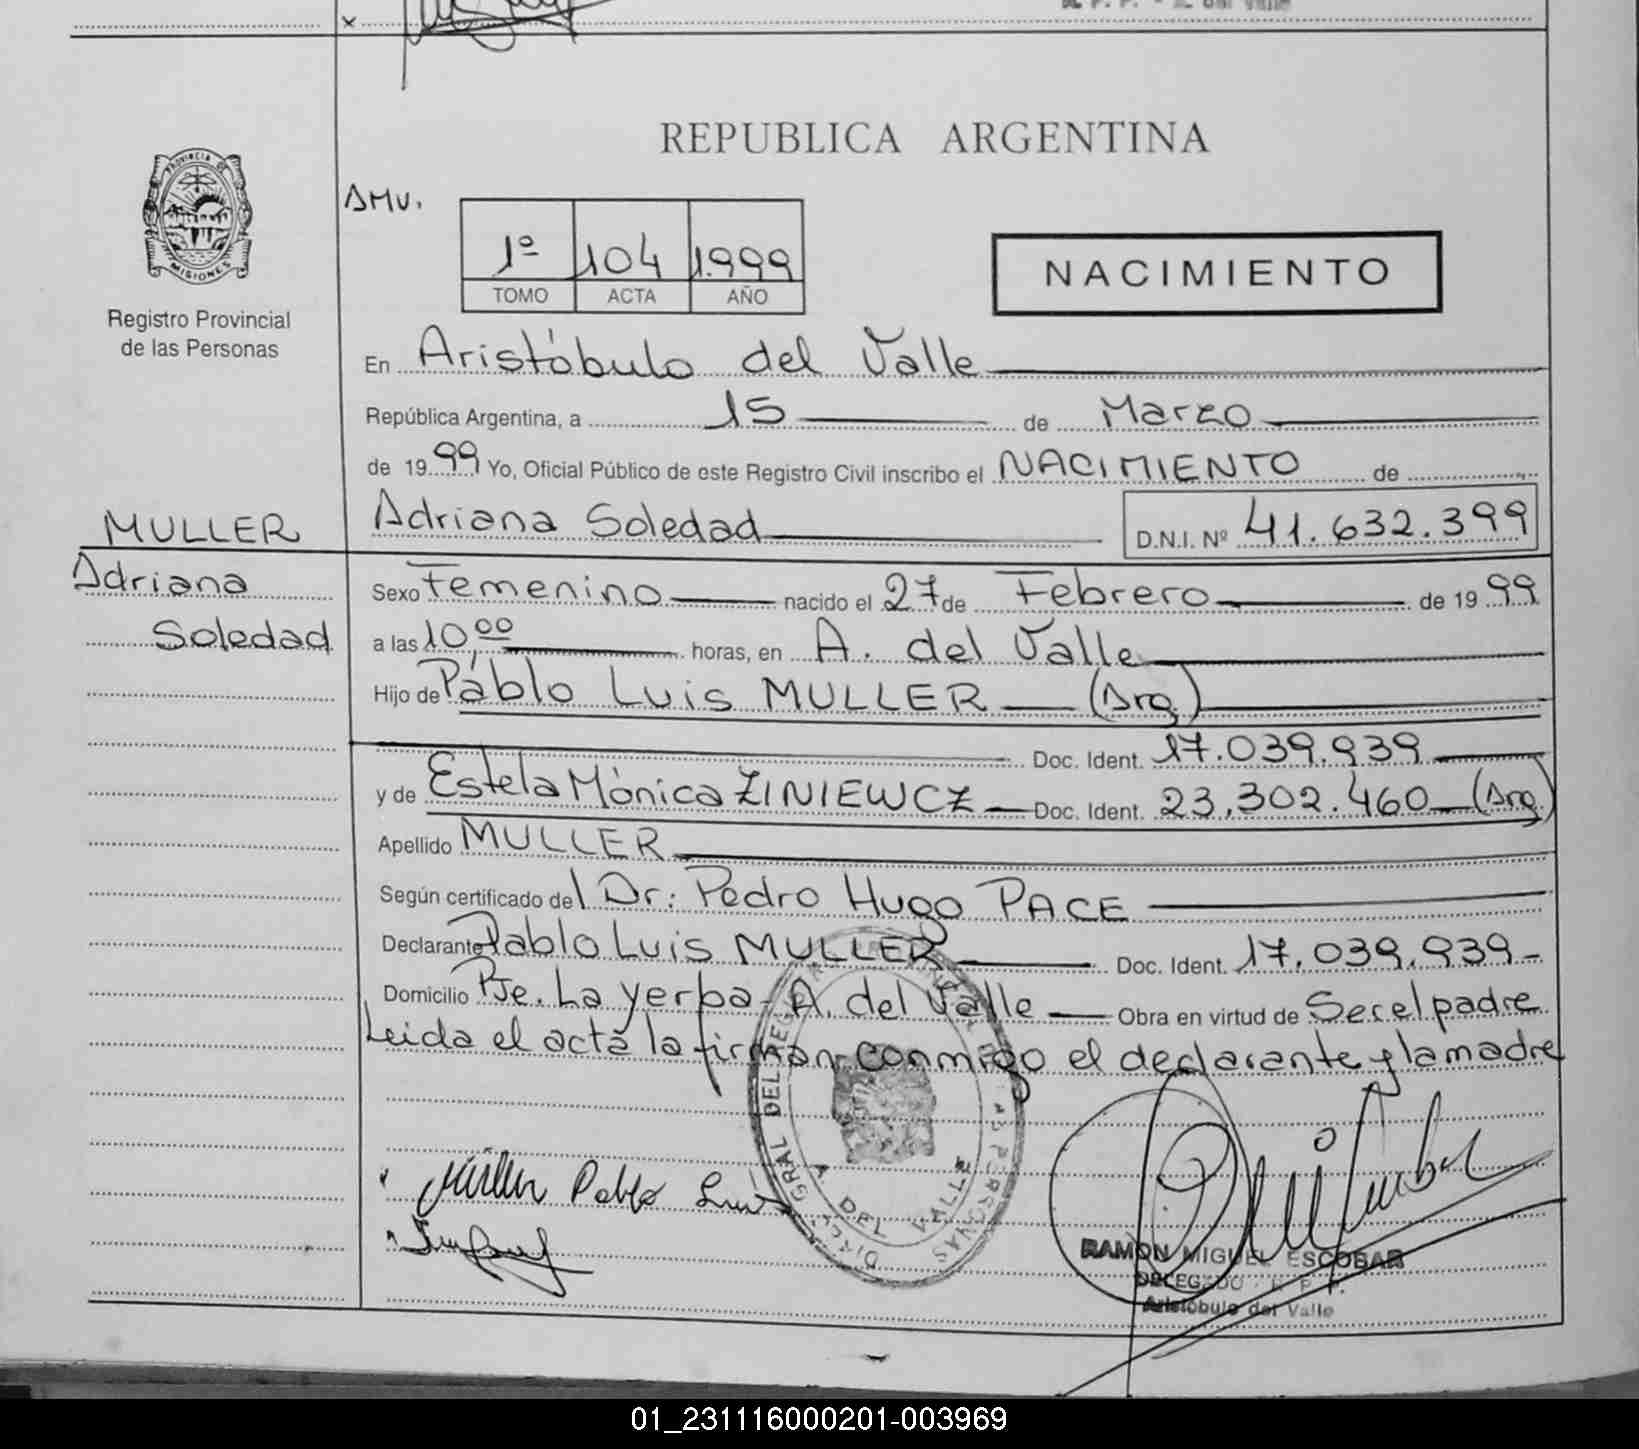 REPUBLICA ARGENTINA
PROVINCIA DE
MISIONES
Registro Provincial
de las Personas
AMV.
1º 104 1.999
TOMO ACTA AÑO
NACIMIENTO
En Aristóbulo del Valle
República Argentina, a 15 de Marzo
de 19 99 Yo, Oficial Público de este Registro Civil inscribo el NACIMIENTO de
MULLER
Adriana
Soledad
Adriana Soledad D.N.I. Nº 41.632.399
Sexo Femenino nacido el 27 de Febrero de 19 99
a las 10,00 horas, en A. del Valle
Hijo de Pablo Luis MULLER (Arg.)
Doc. Ident. 17.039.939
y de Estela Mónica ZINIEWCZ Doc. Ident. 23.302.460 (Arg.)
Apellido MULLER
Según certificado del Dr: Pedro Hugo PACE
Declarante Pablo Luis MULLER Doc. Ident. 17.039.939
Domicilio Pje. La yerba- A. del Valle Obra en virtud de Ser el padre
Leida el acta la firman conmigo el declarante y la madre
Müller Pablo Luis
A. DEL VALLE
RAMON MIGUEL ESCOBAR
DELEGADO R. P. P.
Aristobulo del Valle
01_231116000201-003969